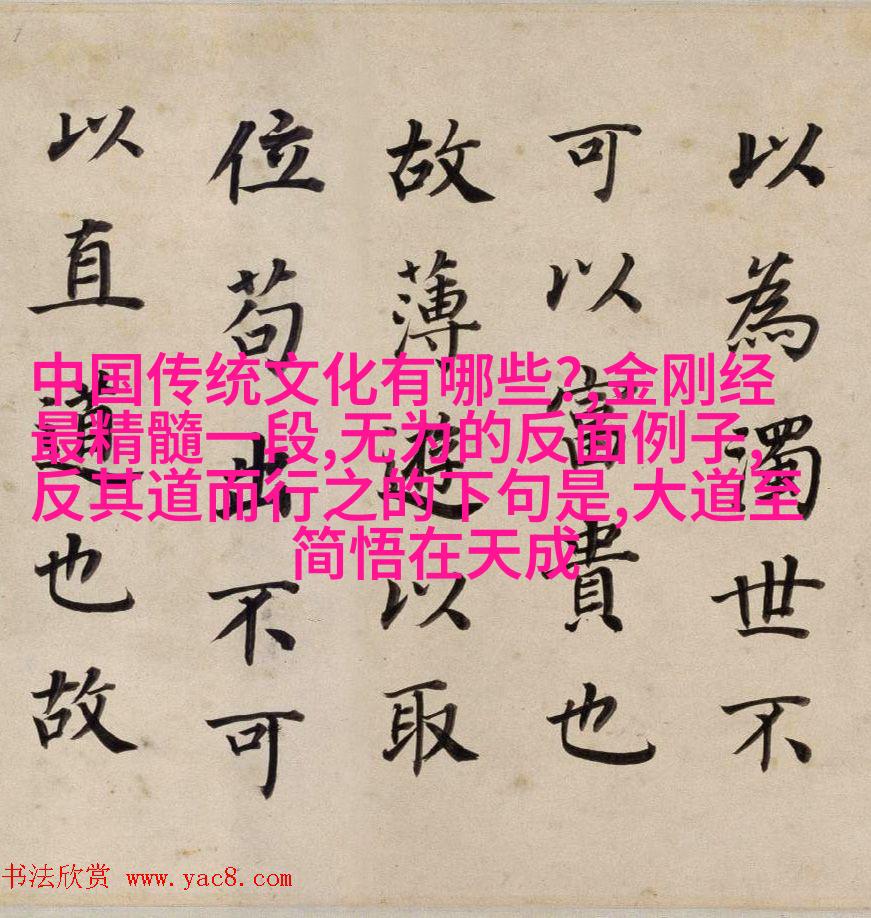 以為濁世不
可以富貴也
故薄遊以取
位苟出不可
以直道也故
中国传统文化有哪些?,金刚经
最精髓一段,无为的反面例子,
反其道而行之的下句是,大道至
简悟在天成
书法欣赏 www.yac8.com